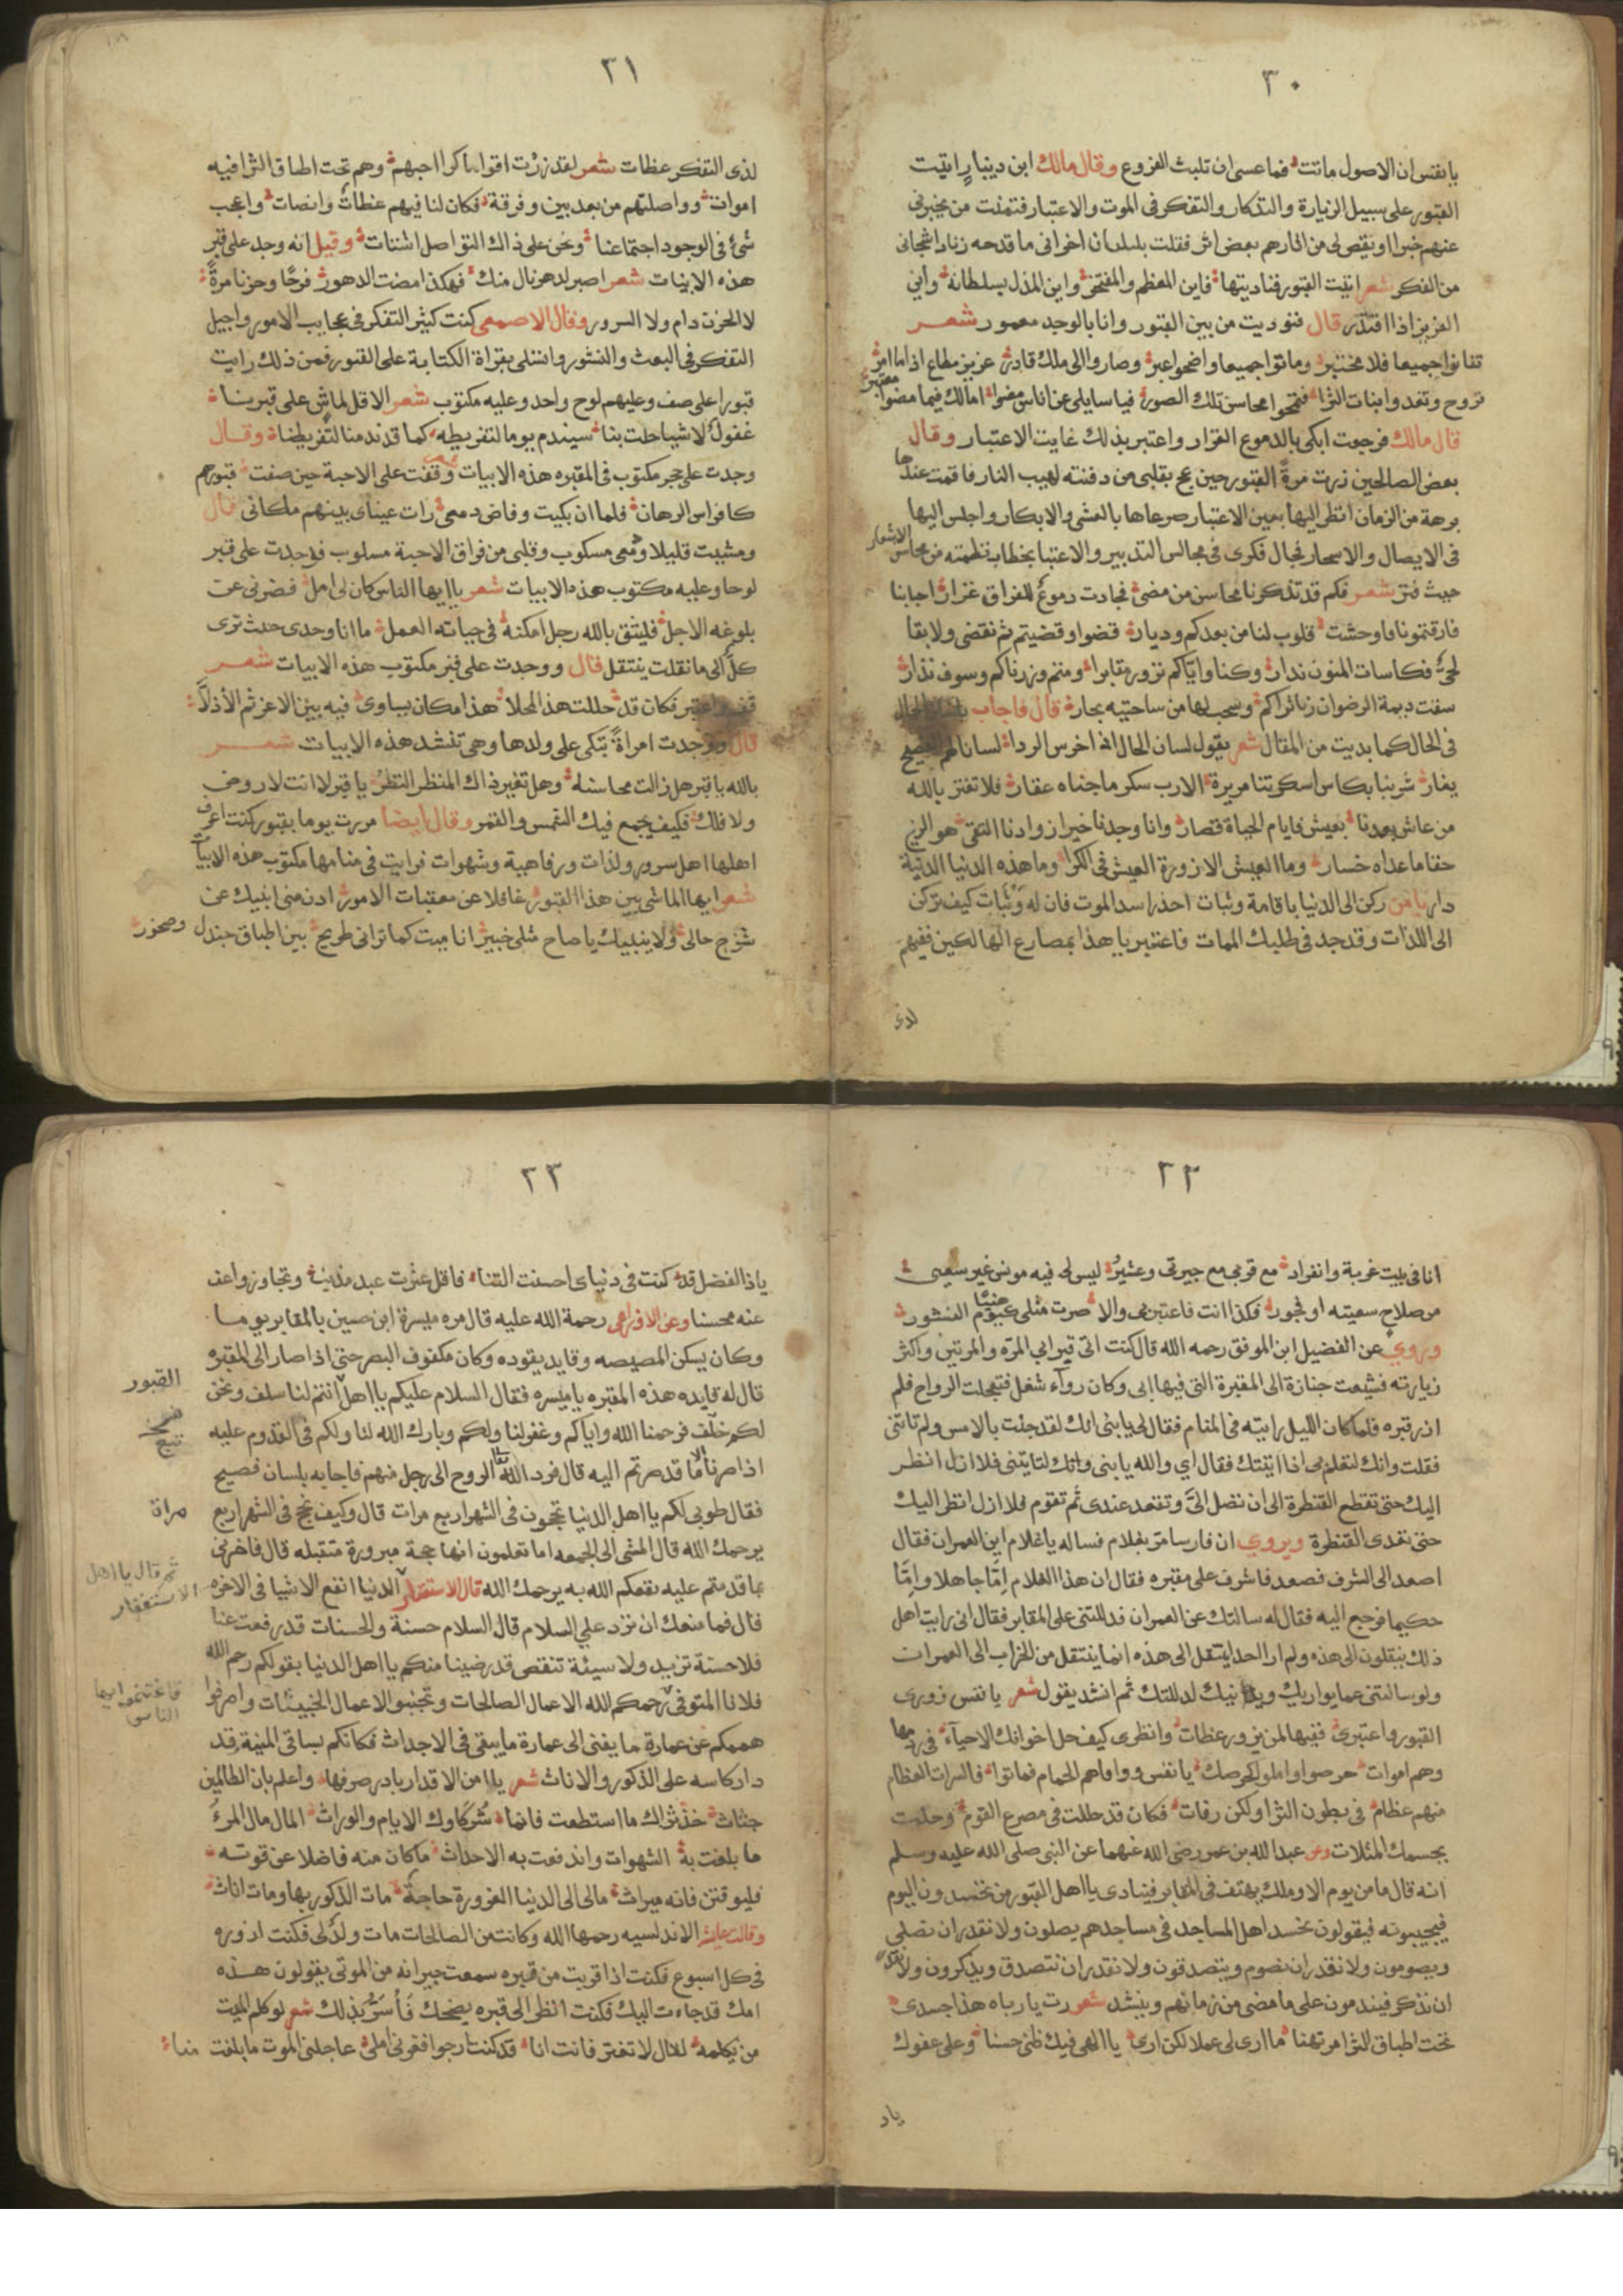 ٣٠
يا نفس ان الاصول ماتت فما عسى ان تلبث الفروع وقال مالك ابن دينار اتيت
القبور على سبيل الزيارة والتذكار والتفكر فى الموت والاعتبار فتمنت من يخبرنى
عنهم خبرا او يقص لى من اثارهم بعض اثر فقلت بلسان احزانى ما قدحه زناد اشجانى
من الفكر شعر اتيت القبور فناديتها فاين المعظم والمفتخر واين المذل بسلطانه واين
العزيز اذا افتخر قال فنوديت من بين القبور وانا بالوجد مغمور شعر
تفانوا جميعا فلا مخبر وماتوا جميعا واضحوا عبر وصاروا الى ملك قادر عزيز مطاع اذا ما امر
تروح وتغدوا بنات الثرا فتمحوا محاسن تلك الصور فيا سايلى عن اناس مضوا امالك فيما مضوا معتبر
قال مالك فرجعت ابكى بالدموع الغزار واعتبر بذلك غاية الاعتبار وقال
بعض الصالحين زرت مرة القبور حين عج بقلبى من دفنته لهيب النار فاقمت عندها
برهة من الزمان انظر اليها بعين الاعتبار صرعاها بالعشى والابكار واجلس اليها
فى الايصال والاسحار فجال فكرى فى مجالس التدبير والاعتبا بخطاب نظمته من محاسن الاشعار
حيث فتر شعر فكم قد تذكرنا محاسن من مضى فجادت دموع للفراق غزار احبابنا
فارقتمونا فاوحشت قلوب لنا من بعدكم وديار قضوا وقضيتم ثم نقضى ولا بقا
لحى فكاسات المنون تدار وكنا واياكم نزور مقابرا ومتم وزرناكم وسوف نزار
سقت ديمة الرضوان زائراكم وسحب لها من ساحتيه بحار قال فاجاب بلسان الحال
فى الحال كما بديت من المقال شعر يقول لسان الحال اذ اخرس الردا لسانا لهم الفصيح
يغار شربنا بكاس اسكرتنا مريرة الارب سكر ما جناه عقار فلا تغتر بالله
من عاش بعدنا بعيش فايام الحياة قصار وانا وجدنا خير زوادنا التقى هو الربح
حقا ما عداه خسار وما العيش الا زورة العيش فى الكرا وما هذه الدنيا الدنية
دار يا من ركن الى الدنيا باقامة وثبات احذر اسد الموت فان له وثبات كيف تركن
الى اللذات وقد جد فى طلبك الممات فاعتبر يا هذا بمصارع الهالكين ففيهم
لذى
٣١
لذى التفكر عظات شعر لقد زرت اقواما كرا احبهم وهم تحت اطباق الثرا فيه
اموات وواصلتهم من بعد بين وفرقة فكان لنا فيهم عظات وانصات واعجب
شئ فى الوجود اجتماعنا ونحن على ذاك التواصل اشتات وقيل انه وجد على قبر
هذه الابيات شعر اصبر لدهر نال منك فهكذا مضت الدهور فرحا وحزنا مرة
لا الحزن دام ولا السرور وقال الاصمعى كنت كثير التفكر فى عجايب الامور واجيل
التفكر فى البعث والنشور واتسلى بقراة الكتابة على القبور فمن ذلك رايت
قبورا على صف وعليهم لوح واحد وعليه مكتوب شعر الا قل لماش على قبرنا
غفول لاشيا حلت بنا سيندم يوما لتفريطه كما قد ندمنا لتفريطنا وقال
وجدت على حجر مكتوب فى المقبره هذه الابيات وقفت على الاحبة حين صفت قبورهم
كافراس الرهان فلما ان بكيت وفاض دمعى رات عيناى بينهم مكانى قال
ومشيت قليلا ودمعى مسكوب وقلبى من فراق الاحبة مسلوب فوجدت على قبر
لوحا وعليه مكتوب هذه الابيات شعر يا ايها الناس كان لى امل قصرنى عن
بلوغه الاجل فليتق بالله رجل امكنه فى حياته العمل ما انا وحدى حيث ترى
كل الى ما نقلت ينتقل قال ووجدت على قبر مكتوب هذه الابيات شعر
قف واعتبر فكان قد حللت هذا المحلا هذا مكان يساوى فيه بين الاعز ثم الاذلا
قال ووجدت امراة تبكى على ولدها وهى تنشد هذه الابيات شعر
بالله يا قبر هل زالت محاسنه وهل تغير ذاك المنظر النظر يا قبر لا انت لا روض
ولا فلك فكيف يجمع فيك الشمس والقمر وقال ايضا مررت يوما بقبور كنت اعرف
اهلها اهل سرور ولذات ورفاهية وشهوات فرايت فى منامها مكتوب هذه الابيات
شعر ايها الماشى بين هذا القبور غافلا عن معقبات الامور ادن منى انبيك عن
شرح حالى ولا ينبيك يا صاح مثلى خبير انا ميت كما ترانى طريح بين اطباق جندل وصخور
٣٢
انا فى بيت غربة وانفراد مع قربى مع جيرتى وعشير ليس لى فيه مونس غير سعيى
من صلاح سعيته او فجور فكذا انت فاعتبر بى والا صرت مثلى حبيسا يوم النشور
وروى عن الفضيل ابن الموفق رحمه الله قال كنت اتى قبر ابى المره والمرتين واكثر
زيارته فشيعت جنازة الى المقبرة التى فيها ابى وكان رواء شغل فتعجلت الرواح فلم
ازر قبره فلما كان الليل رايته فى المنام فقال لى يا بنى انك لقد جئت بالامس ولم تاتنى
فقلت وانك لتعلم بى اذا اتيتك فقال اي والله يا بنى وانك لتايتنى فلا ازل انظر
اليك حتى تقطع القنطرة الى ان تصل الى وتقعد عندى ثم تقوم فلا ازل انظر اليك
حتى تعدى القنطرة ويروي ان فارسا مر بغلام فساله يا غلام اين العمران فقال
اصعد الى الشرف فصعد فاشرف على مقبره فقال ان هذا الغلام اما جاهلا واما
حكيما فرجع اليه فقال له سالتك عن العمران فدللتنى على المقابر فقال انى رايت اهل
ذلك ينقلون الى هذه ولم ار احدا ينتقل الى هذه انما ينتقل من الخراب الى العمرات
ولو سالتنى عما يواريك ويدانيك لدللتك ثم انشد يقول شعر يا نفس زورى
القبور واعتبرى ففيها لمن يزور عظات وانظرى كيف حل اخوانك الاحياء فى رمها
وهم اموات حرصوا واملوا كحرصك يا نفس ووافاهم الحمام فماتوا فالسراة العظام
منهم عظام فى بطون الثرا ولكن رفات فكان قد حللت فى مصرع القوم وحلت
بجسمك المثلات وعن عبدالله بن عمر رضى الله عنهما عن النبى صلى الله عليه وسلم
انه قال ما من يوم الا وملك يهتف فى المقابر فينادى يا اهل القبور من تحسدون اليوم
فيجيبونه فيقولون نحسد اهل المساجد فى مساجدهم يصلون ولا نقدر ان نصلى
ويصومون ولا نقدر ان نصوم ويتصدقون ولا نقدر ان نتصدق ويذكرون ولا نقدر
ان نذكر فيندمون على ما مضى من زمانهم وينشد شعر رت يا رباه هذا جسدى
تحت اطباق الثرا مرتهنا ما ارى لى عملا لكن ارى يا الهى فيك ظنى حسنا وعلى عفوك
ياد
٣٣
ياذا الفضل قد كنت فى دنياى احسنت الثناء فاقل عثرت عبد مذنب وتجاوز واعف
عنه محسنا وعن الاوزاعى رحمة الله عليه قال مره ميسرة ابن حسين بالمقابر يوما
وكان يسكن المصيصه وقايد يقوده وكان مكفوف البصر حتى اذا صار الى المقبره
قال له قايده هذه المقبره يا ميسره فقال السلام عليكم يا اهل انتم لنا سلف ونحن
القبور
لكم خلف فرحمنا الله واياكم وغفر لنا ولكم وبارك الله لنا ولكم فى القدوم عليه
تبع
اذا صرنا الى ما قد صرتم اليه قال فرد الله الروح الى رجل منهم فاجابه بلسان فصيح
فقال طوبى لكم يا اهل الدنيا تحجون فى الشهر اربع مرات قال وكيف نحج فى الشهر اربع
مراة
يرحمك الله قال المشى الى الجمعه اما تعلمون انها حجة مبرورة متقبله قال فاخبرنى
بما قدمتم عليه نفعكم الله به يرحمك الله قال الاستغفار الدنيا انفع الاشيا فى الاخره
ثم قال يا اهل
الاستغفار
قال فما منعك ان ترد علي السلام قال السلام حسنة والحسنات قد رفعت عنا
فلا حسنة تزيد ولا سيئة تنقص قد رضينا منكم يا اهل الدنيا بقولكم رحم الله
فلانا المتوفى رحمكم الله الاعمال الصالحات وتجنبوا الاعمال الخبيثات واصرفوا
فاغتنموا ايها
الناس
هممكم عن عمارة ما يفنى الى عمارة ما يبقى فى الاجداث فكانكم بساقى المنية قد
دار كاسه على الذكور والاناث شعر يا امن الاقدار بادر صرفها واعلم بان الطالبين
حثاث خذ تراثك ما استطعت فانما شركاوك الايام والوراث المال مال المرء
ما بلغت به الشهوات واندفعت به الاحداث ما كان منه فاضلا عن قوته
فليوقنن فانه ميراث مالى الى الدنيا الغرورة حاجة مات الذكور بها ومات اناث
وقالت عايشة الاندلسيه رحمها الله وكانت من الصالحات مات ولد لى فكنت ازوره
فى كل اسبوع فكنت اذا قربت من قبره سمعت جيرانه من الموتى يقولون هذه
امك قد جاءت اليك فكنت انظر الى قبره يضحك فأسر بذلك شعر لو كلم الميت
من يكلمه لقال لا تغتر فانت انا قد كنت ارجوا فغرنى املى عاجلنى الموت ما بلغت مناء